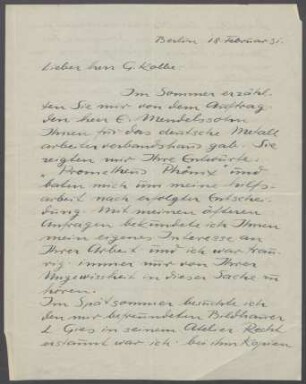 Berlin 18 Februar 31.
Lieber Herr G. Kolbe
Im Sommer erzähl-
ten Sie mir von dem Auftrag
den Herr E. Mendelssohn
Ihnen für das deutsche Metall
arbeiterverbandshaus gab. Sie
zeigten mir Ihre Entwürfe
"Prometheus Phönix" und
baten mich um meine Hilfs-
arbeit nach erfolgter Entschei-
dung. Mit meinen öfteren
Anfragen bekundete ich Ihnen
mein eigenes Interesse an
Ihrer Arbeit und ich war trau-
rig immer nur von Ihrer
Ungewissheit in dieser Sache zu
hören.
Im Spätsommer besuchte ich
den mir befreundeten Bildhauer
L Gies in seinem Atelier Recht
erstaunt war ich bei ihm Kopien